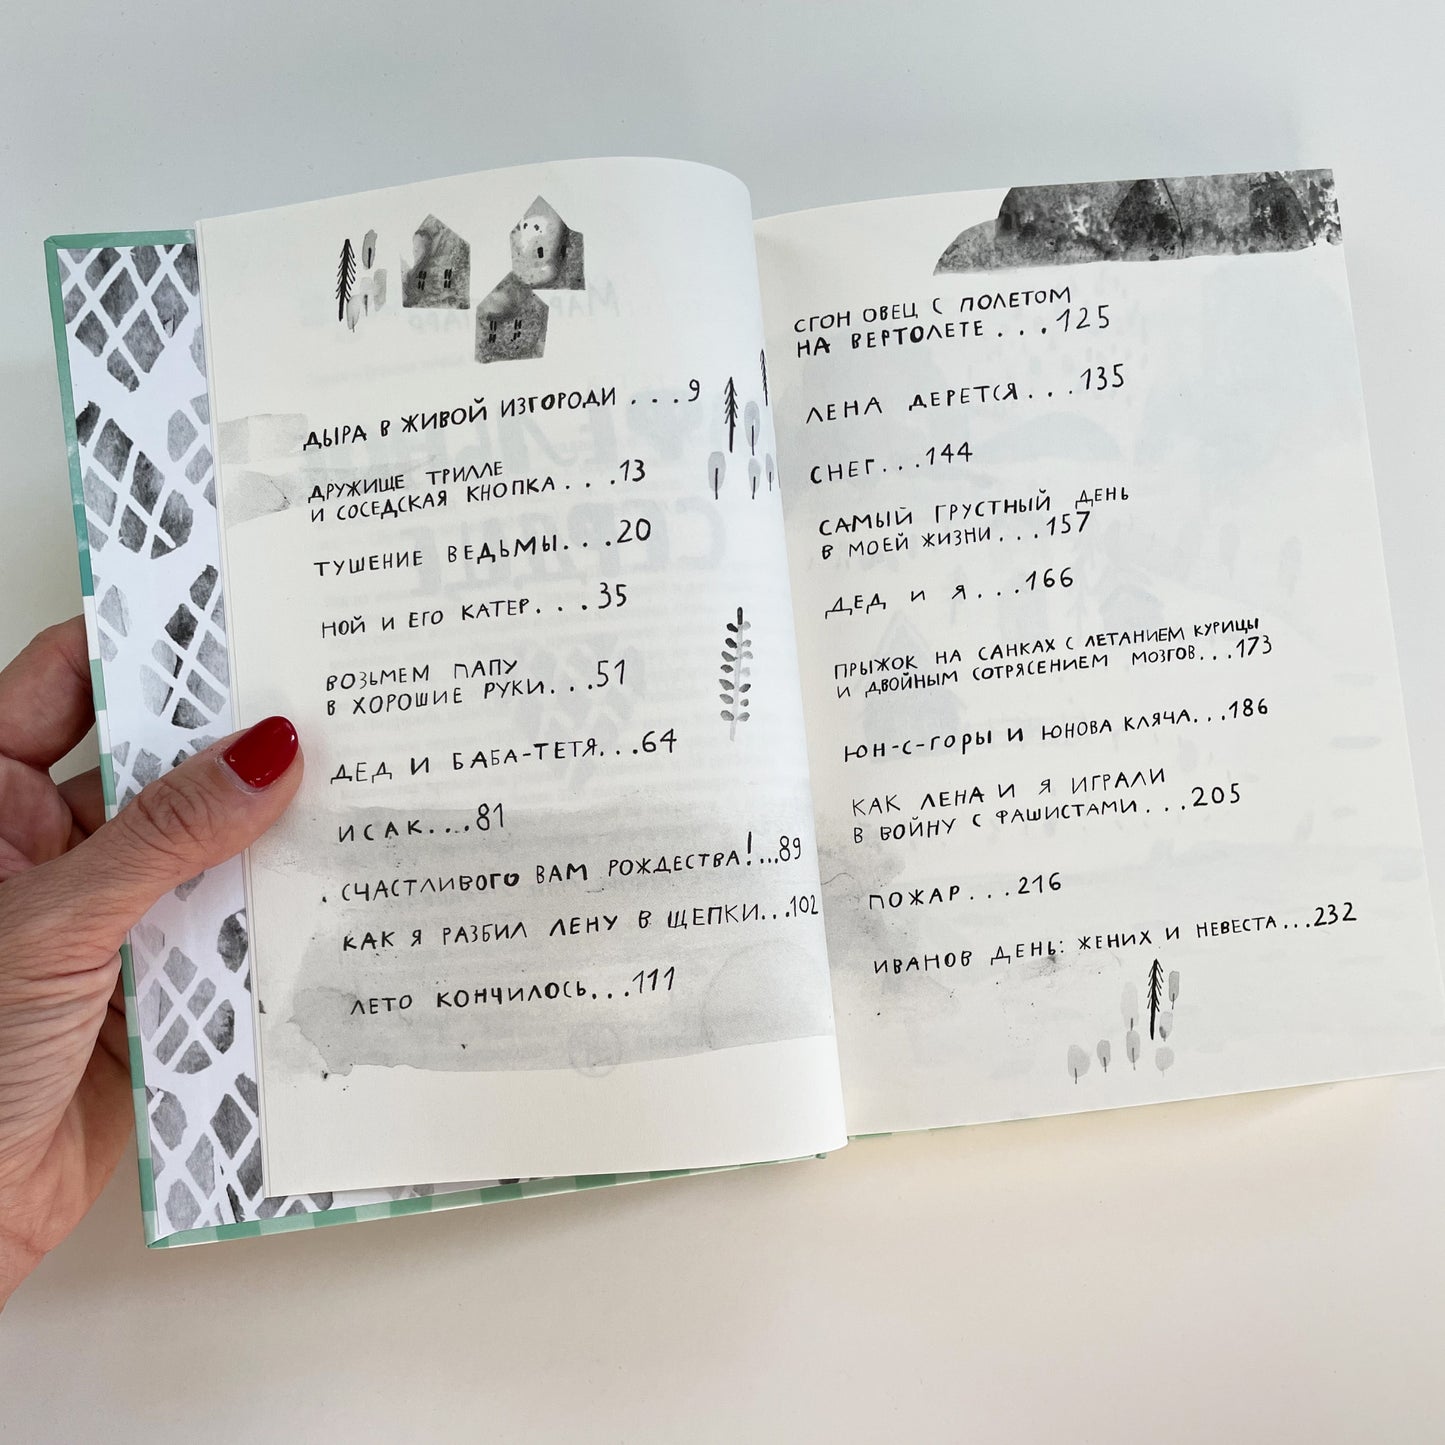 ДЫРА В ЖИВОЙ ИЗГОРОДИ . . . 9
ДРУЖИЩЕ ТРИЛЛЕ
И СОСЕДСКАЯ КНОПКА . . . 13
ТУШЕНИЕ ВЕДЬМЫ. . . 20
НОЙ И ЕГО КАТЕР. . . 35
ВОЗЬМЕМ ПАПУ
В ХОРОШИЕ РУКИ. . . 51
ДЕД И БАБА-ТЕТЯ. . . 64
ИСАК. . . . 81
СЧАСТЛИВОГО ВАМ РОЖДЕСТВА!... 89
КАК Я РАЗБИЛ ЛЕНУ В ЩЕПКИ. . . 102
ЛЕТО КОНЧИЛОСЬ. . . 111
СГОН ОВЕЦ С ПОЛЕТОМ
НА ВЕРТОЛЕТЕ . . . 125
ЛЕНА ДЕРЕТСЯ. . . 135
СНЕГ. . . 144
САМЫЙ ГРУСТНЫЙ ДЕНЬ
В МОЕЙ ЖИЗНИ. . . 157
ДЕД И Я. . . 166
ПРЫЖОК НА САНКАХ С ЛЕТАНИЕМ КУРИЦЫ
И ДВОЙНЫМ СОТРЯСЕНИЕМ МОЗГОВ. . . 173
ЮН-С-ГОРЫ И ЮНОВА КЛЯЧА. . . 186
КАК ЛЕНА И Я ИГРАЛИ
В ВОЙНУ С ФАШИСТАМИ. . . 205
ПОЖАР. . . 216
ИВАНОВ ДЕНЬ: ЖЕНИХ И НЕВЕСТА. . . 232